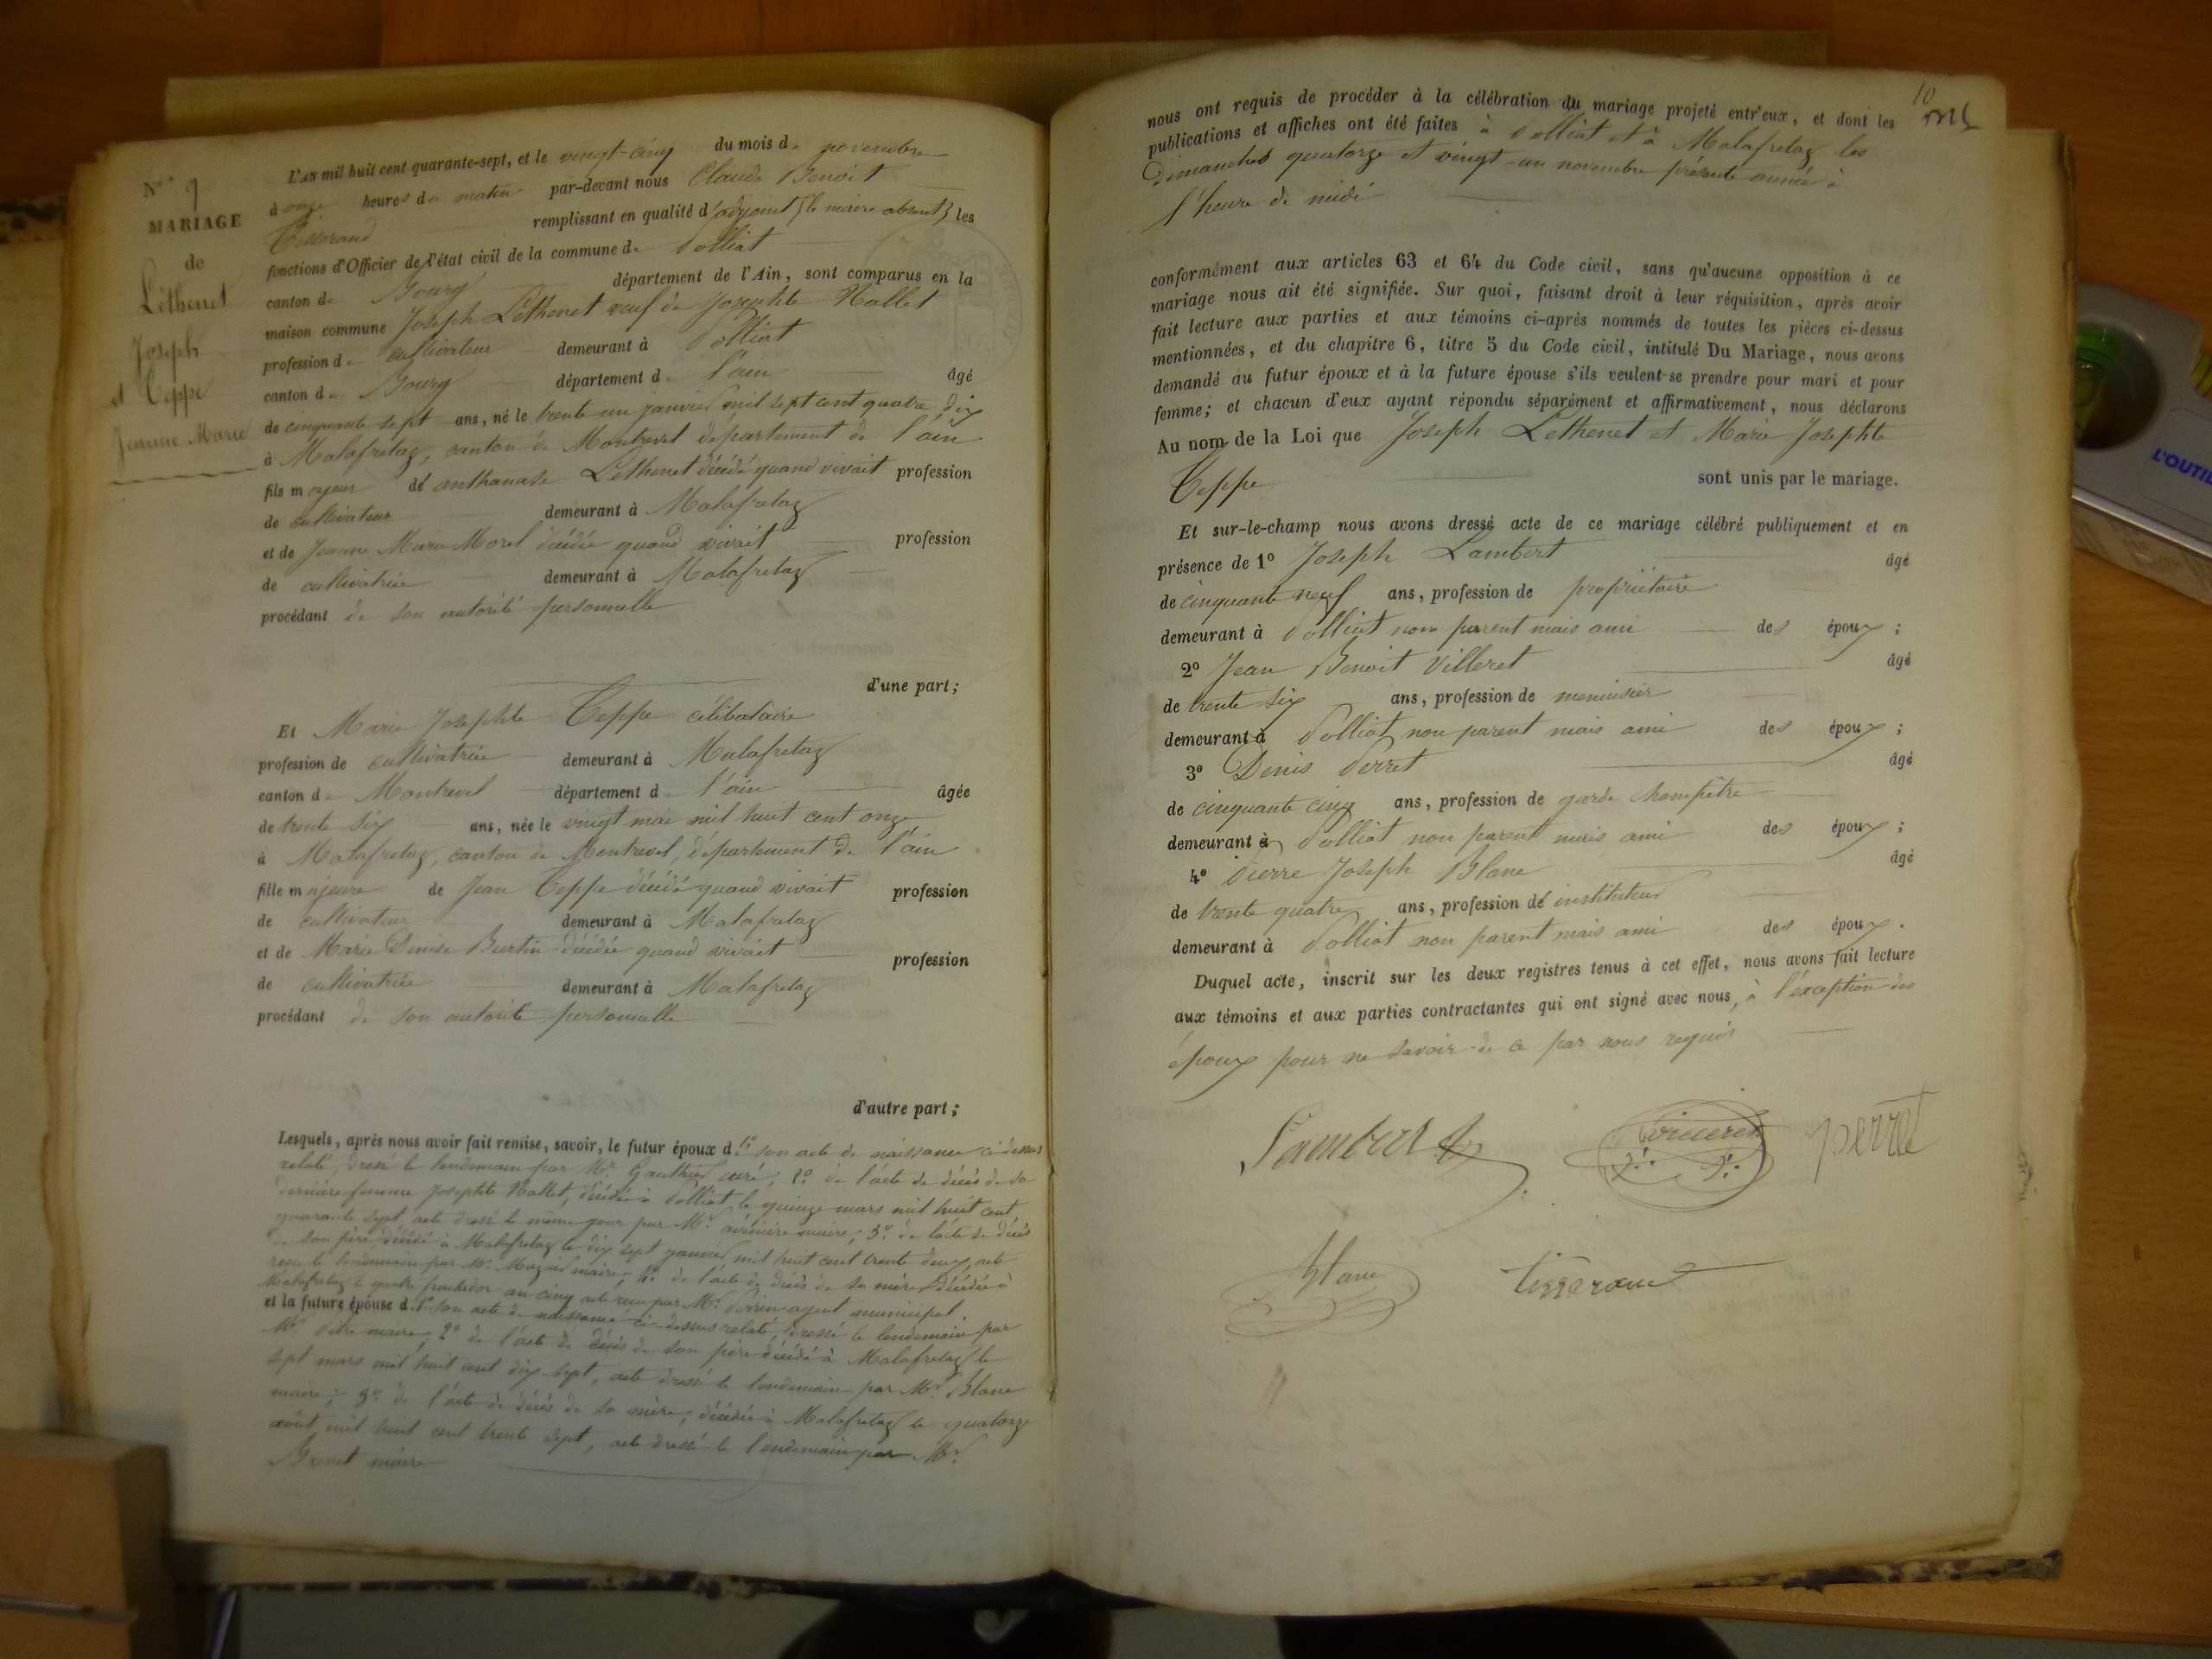 N° 9
MARIAGE
de
Léthenet
Joseph
et Teppe
Jeanne Marie
L'AN mil huit cent quarante-sept, et le vingt-cinq du mois de novembre
à onze heures du matin par-devant nous Claude Benoit
Tisserand remplissant en qualité d'adjoint (le maire absent) les
fonctions d'Officier de l'état civil de la commune de Polliat
canton de Bourg département de l'Ain, sont comparus en la
maison commune Joseph Léthenet veuf de Josephte Hallet
profession de cultivateur demeurant à Polliat
canton de Bourg département de l'ain âgé
de cinquante sept ans, né le trente un janvier mil sept cent quatre dix
à Malafretaz, canton de Montrevel département de l'ain
fils majeur de anthanase Lethenet décédé quand vivait profession
de cultivateur demeurant à Malafretaz
et de Jeanne Marie Morel décédée quand vivait profession
de cultivatrice demeurant à Malafretaz
procédant de son autorité personnelle
d'une part;
Et Marie Josephte Teppe célibataire
profession de cultivatrice demeurant à Malafretaz
canton de Montrevel département de l'ain âgée
de trente six ans, née le vingt mai mil huit cent onze
à Malafretaz, canton de Montrevel, département de l'ain
fille majeure de Jean Teppe décédé quand vivait profession
de cultivateur demeurant à Malafretaz
et de Marie Denise Burtin décédée quand vivait profession
de cultivatrice demeurant à Malafretaz
procédant de son autorité personnelle
d'autre part;
Lesquels, après nous avoir fait remise, savoir, le futur époux d 1° son acte de naissance ci-dessus
relaté, dressé le lendemain par Mr Gauthier curé; 2° de l'acte de décès de sa
dernière femme Josephte Hallet, décédée à Polliat le quinze mars mil huit cent
quarante sept acte dressé le même jour par Mr maire; 3° de l'acte de décès
de son père décédé à Malafretaz le dix sept janvier mil huit cent trente deux, acte
reçu le lendemain par Mr maire, 4° de l'acte de décès de sa mère, décédée à
Malafretaz le quatre fructidor an cinq acte reçu par Mr Perrin agent municipal.
et la future épouse d 1° son acte de naissance ci-dessus relaté, dressé le lendemain par
Mr maire; 2° de l'acte de décès de son père décédé à Malafretaz le
sept mars mil huit cent dix-sept, acte dressé le lendemain par Mr Blanc
maire; 3° de l'acte de décès de sa mère, décédée à Malafretaz le quatorze
août mil huit cent trente sept, acte dressé le lendemain par Mr
maire
10
nous ont requis de procéder à la célébration du mariage projeté entr'eux, et dont les
publications et affiches ont été faites à Polliat et à Malafretaz les
Dimanches quatorze et vingt-un novembre présente année à
l'heure de midi
conformément aux articles 63 et 64 du Code civil, sans qu'aucune opposition à ce
mariage nous ait été signifiée. Sur quoi, faisant droit à leur réquisition, après avoir
fait lecture aux parties et aux témoins ci-après nommés de toutes les pièces ci-dessus
mentionnées, et du chapitre 6, titre 5 du Code civil, intitulé Du Mariage, nous avons
demandé au futur époux et à la future épouse s'ils veulent se prendre pour mari et pour
femme; et chacun d'eux ayant répondu séparément et affirmativement, nous déclarons
Au nom de la Loi que Joseph Lethenet et Marie Josephte
Teppe sont unis par le mariage.
Et sur-le-champ nous avons dressé acte de ce mariage célébré publiquement et en
présence de 1° Joseph Lambert âgé
de cinquante neuf ans, profession de propriétaire
demeurant à Polliat non parent mais ami des époux;
2° Jean Benoit Villeret âgé
de trente six ans, profession de menuisier
demeurant à Polliat non parent mais ami des époux;
3° Denis Perret âgé
de cinquante cinq ans, profession de garde champêtre
demeurant à Polliat non parent mais ami des époux;
4° Pierre Joseph Blanc âgé
de trente quatre ans, profession de instituteur
demeurant à Polliat non parent mais ami des époux.
Duquel acte, inscrit sur les deux registres tenus à cet effet, nous avons fait lecture
aux témoins et aux parties contractantes qui ont signé avec nous, à l'exception des
époux pour ne savoir de ce par nous requis
Lambert
Villeret
perret
blanc
tisserand
L'OUTIL